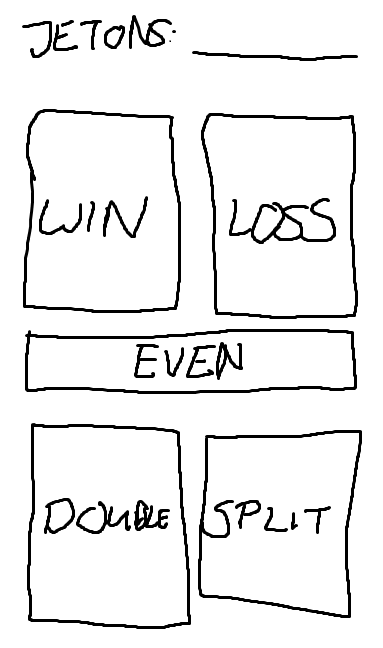 JETONS:
WIN LOSS
EVEN
DOUBLE SPLIT